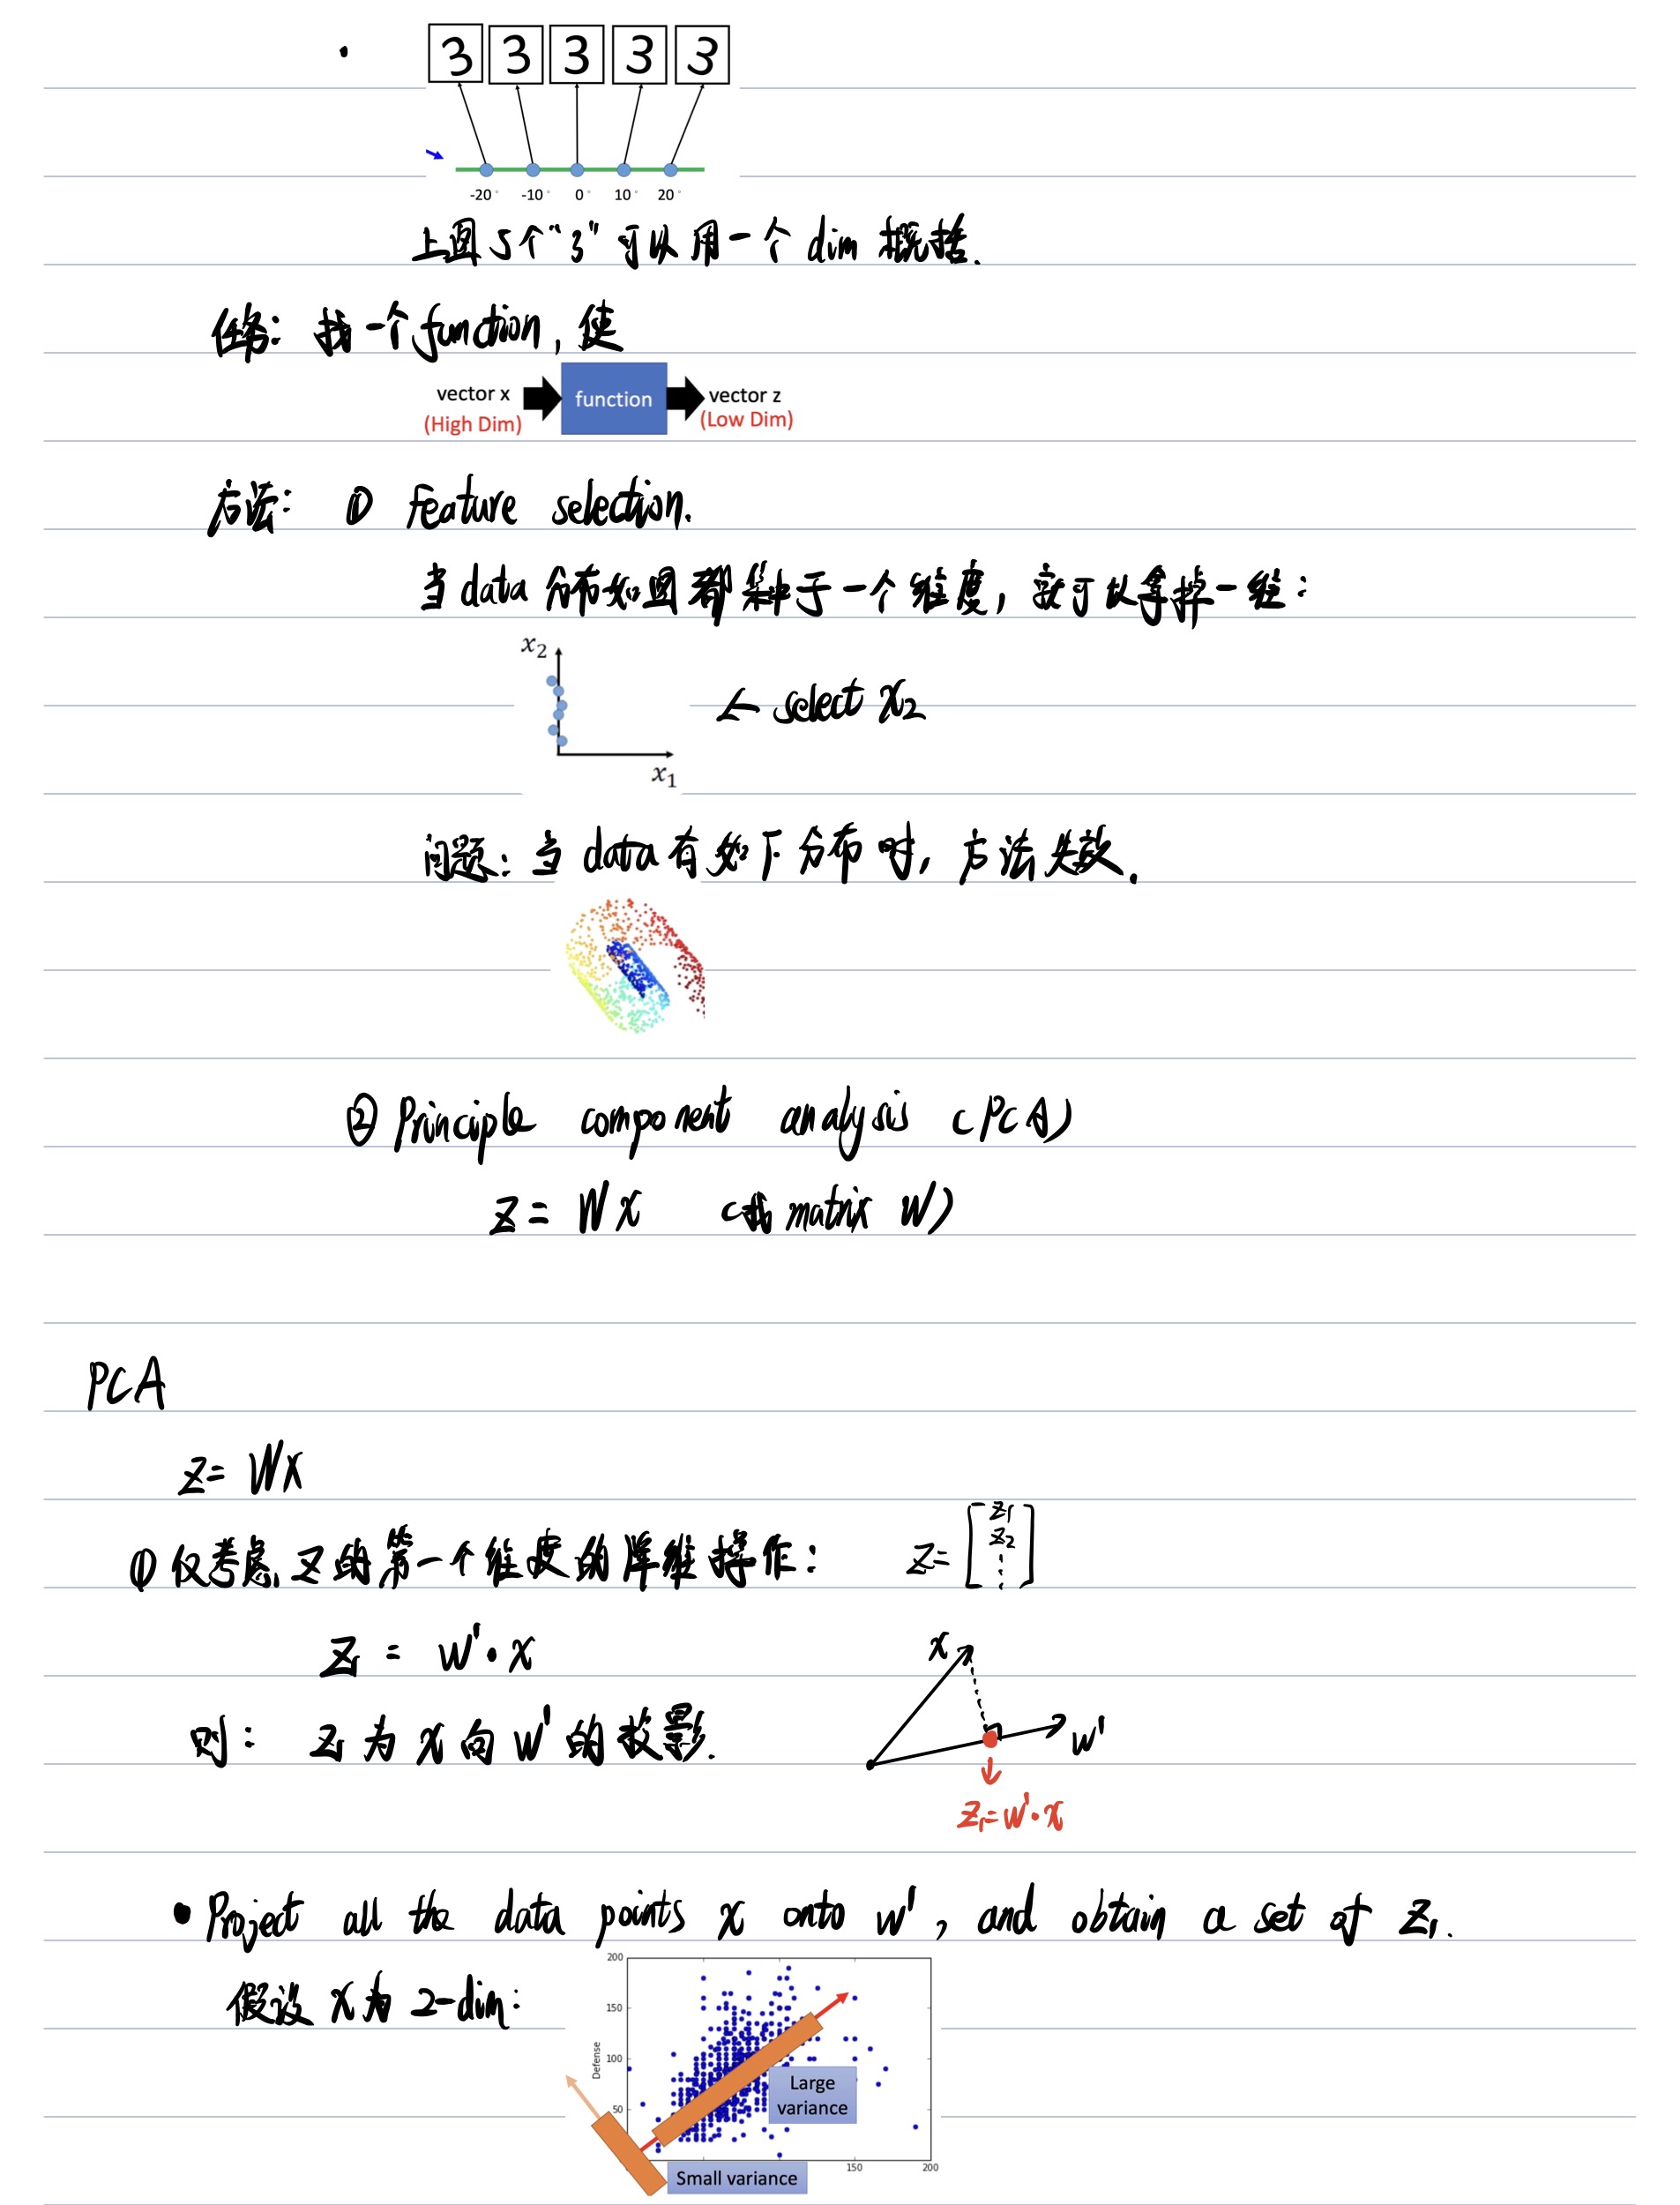 3 3 3 3 3
-20° -10° 0° 10° 20°
上图5个“3”可以用一个dim概括.
任务: 找一个function, 使
vector x function vector z
(High Dim) (Low Dim)
方法: ① Feature selection.
当data分布如图都集中于一个维度, 就可以拿掉一维:
x₂
← select x₂
x₁
问题: 当data有如下分布时, 方法失效.
② Principle component analysis (PCA)
Z = Wx (找matrix W)
PCA
Z = Wx
① 仅考虑Z的第一个维度的降维操作: Z = [z₁ z₂ ⋮]
Z₁ = w¹·x
x
则: Z₁为x向w¹的投影.
w¹
Z₁=w¹·x
• Project all the data points x onto w¹, and obtain a set of Z₁.
假设x为2-dim:
200
150
100
50
Defense
Large
variance
150 200
Small variance